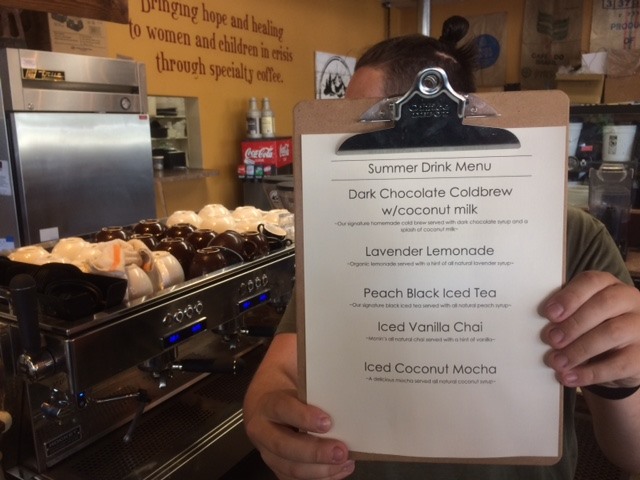 Bringing hope and healing
to women and children in crisis
through specialty coffee.
Coca-Cola
Summer Drink Menu
Dark Chocolate Coldbrew
w/coconut milk
~Our signature homemade cold brew served with dark chocolate syrup and a
splash of coconut milk~
Lavender Lemonade
~Organic lemonade served with a hint of all natural lavender syrup~
Peach Black Iced Tea
~Our signature black iced tea served with all natural peach syrup~
Iced Vanilla Chai
all natural chai served with a hint of vanilla~
Iced Coconut Mocha
~A delicious mocha served all natural coconut syrup~